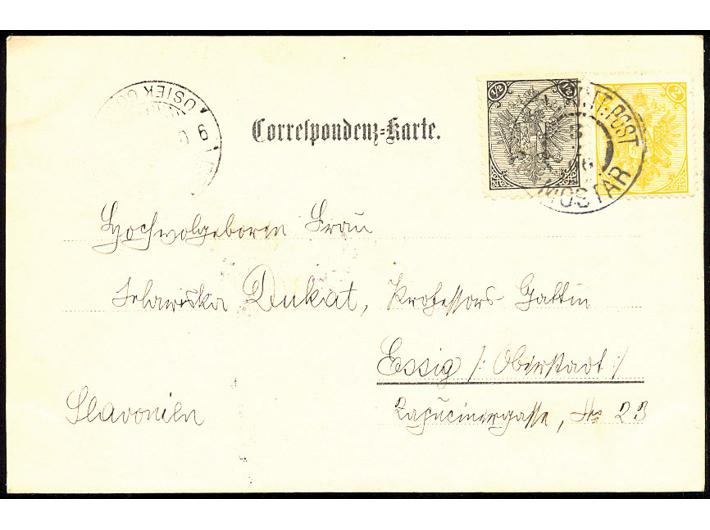 Correspondenz-Karte.
½
½
2
MILIT. POST
MOSTAR
OSIEK GO
Hochwolgeboren Frau
Dukat, Professors-Gattin
Essig /: Oberstadt :/
Slavonien
Kapucinergasse, No 23